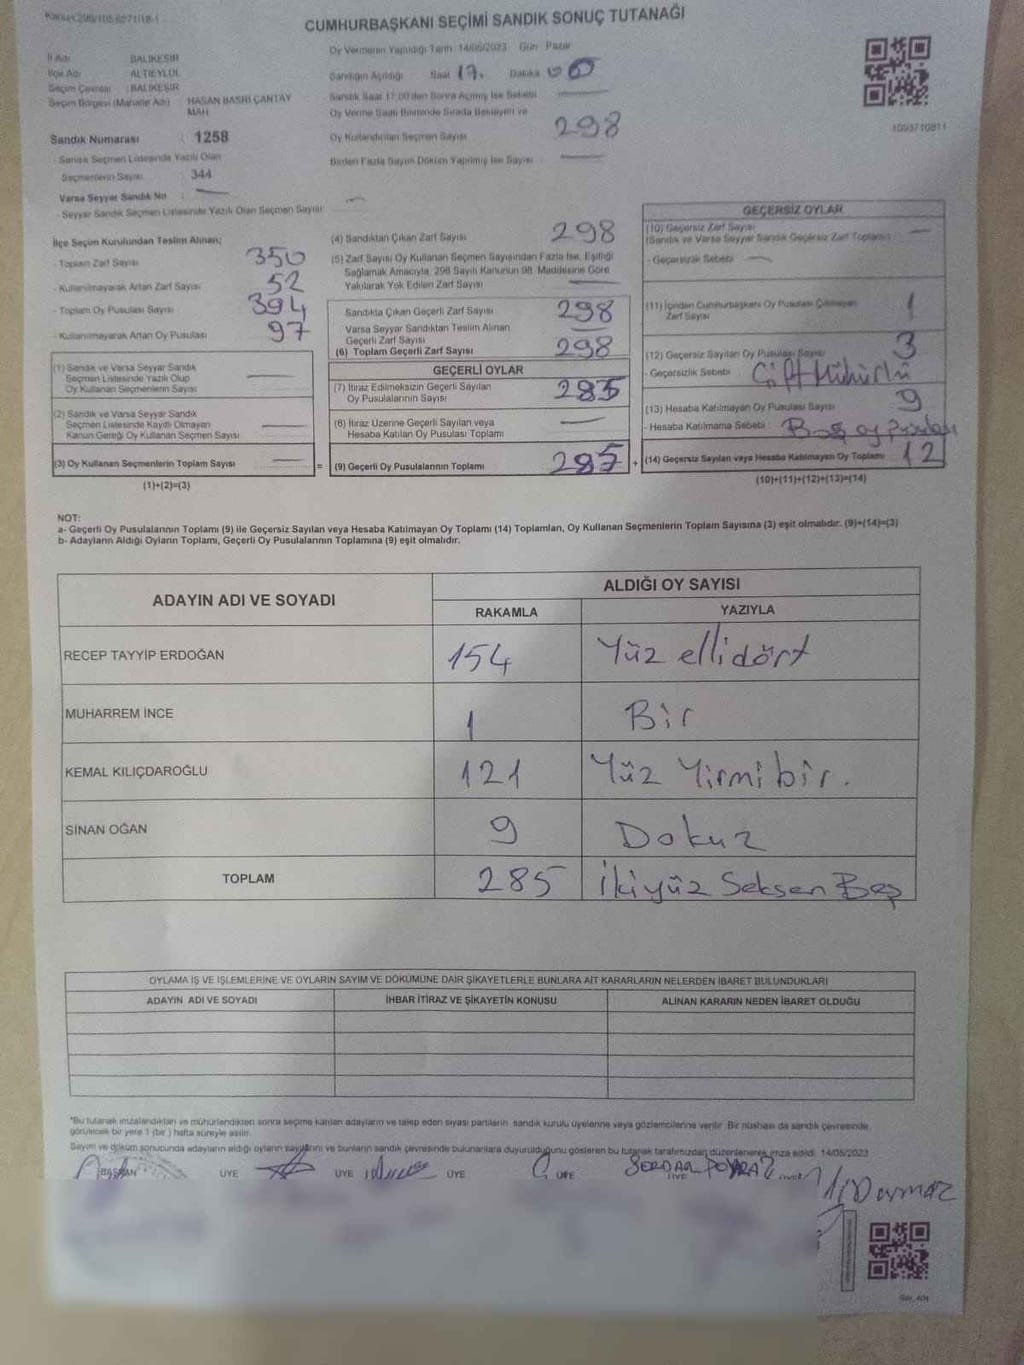 CUMHURBAŞKANI SEÇİMİ SANDIK SONUÇ TUTANAĞI
İl Adı BALIKESİR
İlçe Adı ALTIEYLÜL
Seçim Çevresi : BALIKESİR
Seçim Bölgesi (Mahalle Adı) HASAN BASRİ ÇANTAY MAH.
Sandık Numarası : 1258
- Sandık Seçmen Listesinde Yazılı Olan
Seçmenlerin Sayısı : 344
Varsa Seyyar Sandık No :
- Seyyar Sandık Seçmen Listesinde Yazılı Olan Seçmen Sayısı:
Oy Vermenin Yapıldığı Tarih: 14/05/2023 Gün: Pazar
Sandığın Açıldığı Saat 17. Dakika 00
Sandık Saat 17:00'den Sonra Açılmış İse Sebebi
Oy Verme Saati Bitiminde Sırada Bekleyen ve
Oy Kullandırılan Seçmen Sayısı 298
Birden Fazla Sayım Döküm Yapılmış İse Sayısı
1093710811
İlçe Seçim Kurulundan Teslim Alınan;
- Toplam Zarf Sayısı 350
- Kullanılmayarak Artan Zarf Sayısı 52
- Toplam Oy Pusulası Sayısı 394
- Kullanılmayarak Artan Oy Pusulası 97
(1) Sandık ve Varsa Seyyar Sandık
Seçmen Listesinde Yazılı Olup
Oy Kullanan Seçmenlerin Sayısı
(2) Sandık ve Varsa Seyyar Sandık
Seçmen Listesinde Kaydı Olmayan
Kanun Gereği Oy Kullanan Seçmen Sayısı
(3) Oy Kullanan Seçmenlerin Toplam Sayısı
(1)+(2)=(3)
(4) Sandıktan Çıkan Zarf Sayısı 298
(5) Zarf Sayısı Oy Kullanan Seçmen Sayısından Fazla İse, Eşitliği
Sağlamak Amacıyla, 298 Sayılı Kanunun 98. Maddesine Göre
Yakılarak Yok Edilen Zarf Sayısı
Sandıkta Çıkan Geçerli Zarf Sayısı 298
Varsa Seyyar Sandıktan Teslim Alınan
Geçerli Zarf Sayısı
(6) Toplam Geçerli Zarf Sayısı 298
GEÇERLİ OYLAR
(7) İtiraz Edilmeksizin Geçerli Sayılan
Oy Pusulalarının Sayısı 285
(8) İtiraz Üzerine Geçerli Sayılan veya
Hesaba Katılan Oy Pusulası Toplamı
= (9) Geçerli Oy Pusulalarının Toplamı 285 +
GEÇERSİZ OYLAR
(10) Geçersiz Zarf Sayısı
(Sandık ve Varsa Seyyar Sandık Geçersiz Zarf Toplamı)
- Geçersizlik Sebebi
(11) İçinden Cumhurbaşkanı Oy Pusulası Çıkmayan
Zarf Sayısı 1
(12) Geçersiz Sayılan Oy Pusulası Sayısı 3
- Geçersizlik Sebebi : Çift Mühürlü
(13) Hesaba Katılmayan Oy Pusulası Sayısı 9
- Hesaba Katılmama Sebebi : Boş oy pusulası
(14) Geçersiz Sayılan veya Hesaba Katılmayan Oy Toplamı 12
(10)+(11)+(12)+(13)=(14)
NOT:
a- Geçerli Oy Pusulalarının Toplamı (9) ile Geçersiz Sayılan veya Hesaba Katılmayan Oy Toplamı (14) Toplamları, Oy Kullanan Seçmenlerin Toplam Sayısına (3) eşit olmalıdır. (9)+(14)=(3)
b- Adayların Aldığı Oyların Toplamı, Geçerli Oy Pusulalarının Toplamına (9) eşit olmalıdır.
ADAYIN ADI VE SOYADI ALDIĞI OY SAYISI
RAKAMLA YAZIYLA
RECEP TAYYİP ERDOĞAN 154 Yüz ellidört
MUHARREM İNCE 1 Bir
KEMAL KILIÇDAROĞLU 121 Yüz Yirmi bir.
SİNAN OĞAN 9 Dokuz
TOPLAM 285 İkiyüz Seksen Beş
OYLAMA İŞ VE İŞLEMLERİNE VE OYLARIN SAYIM VE DÖKÜMÜNE DAİR ŞİKAYETLERLE BUNLARA AİT KARARLARIN NELERDEN İBARET BULUNDUKLARI
ADAYIN ADI VE SOYADI İHBAR İTİRAZ VE ŞİKAYETİN KONUSU ALINAN KARARIN NEDEN İBARET OLDUĞU
*Bu tutanak imzalandıktan ve mühürlendikten sonra seçime katılan adayların ve talep eden siyasi partilerin sandık kurulu üyelerine veya gözlemcilerine verilir. Bir nüshası da sandık çevresinde
görülecek bir yere 1 (bir) hafta süreyle asılır.
Sayım ve döküm sonucunda adayların aldığı oyların sayılarını ve bunların sandık çevresinde bulunanlara duyurulduğunu gösteren bu tutanak tarafımızdan düzenlenerek imza edildi. 14/05/2023
BAŞKAN ÜYE ÜYE ÜYE ÜYE SERDAR POYRAZ ÜYE